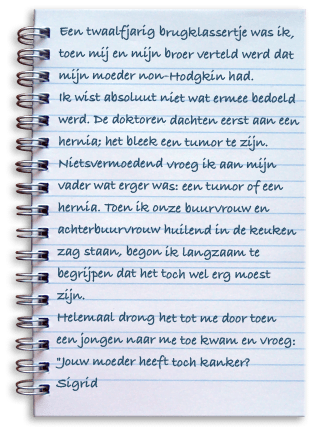 Een twaalfjarig brugklassertje was ik,
toen mij en mijn broer verteld werd dat
mijn moeder non-Hodgkin had.
Ik wist absoluut niet wat ermee bedoeld
werd. De doktoren dachten eerst aan een
hernia; het bleek een tumor te zijn.
Nietsvermoedend vroeg ik aan mijn
vader wat erger was: een tumor of een
hernia. Toen ik onze buurvrouw en
achterbuurvrouw huilend in de keuken
zag staan, begon ik langzaam te
begrijpen dat het toch wel erg moest
zijn.
Helemaal drong het tot me door toen
een jongen naar me toe kwam en vroeg:
"Jouw moeder heeft toch kanker?
Sigrid